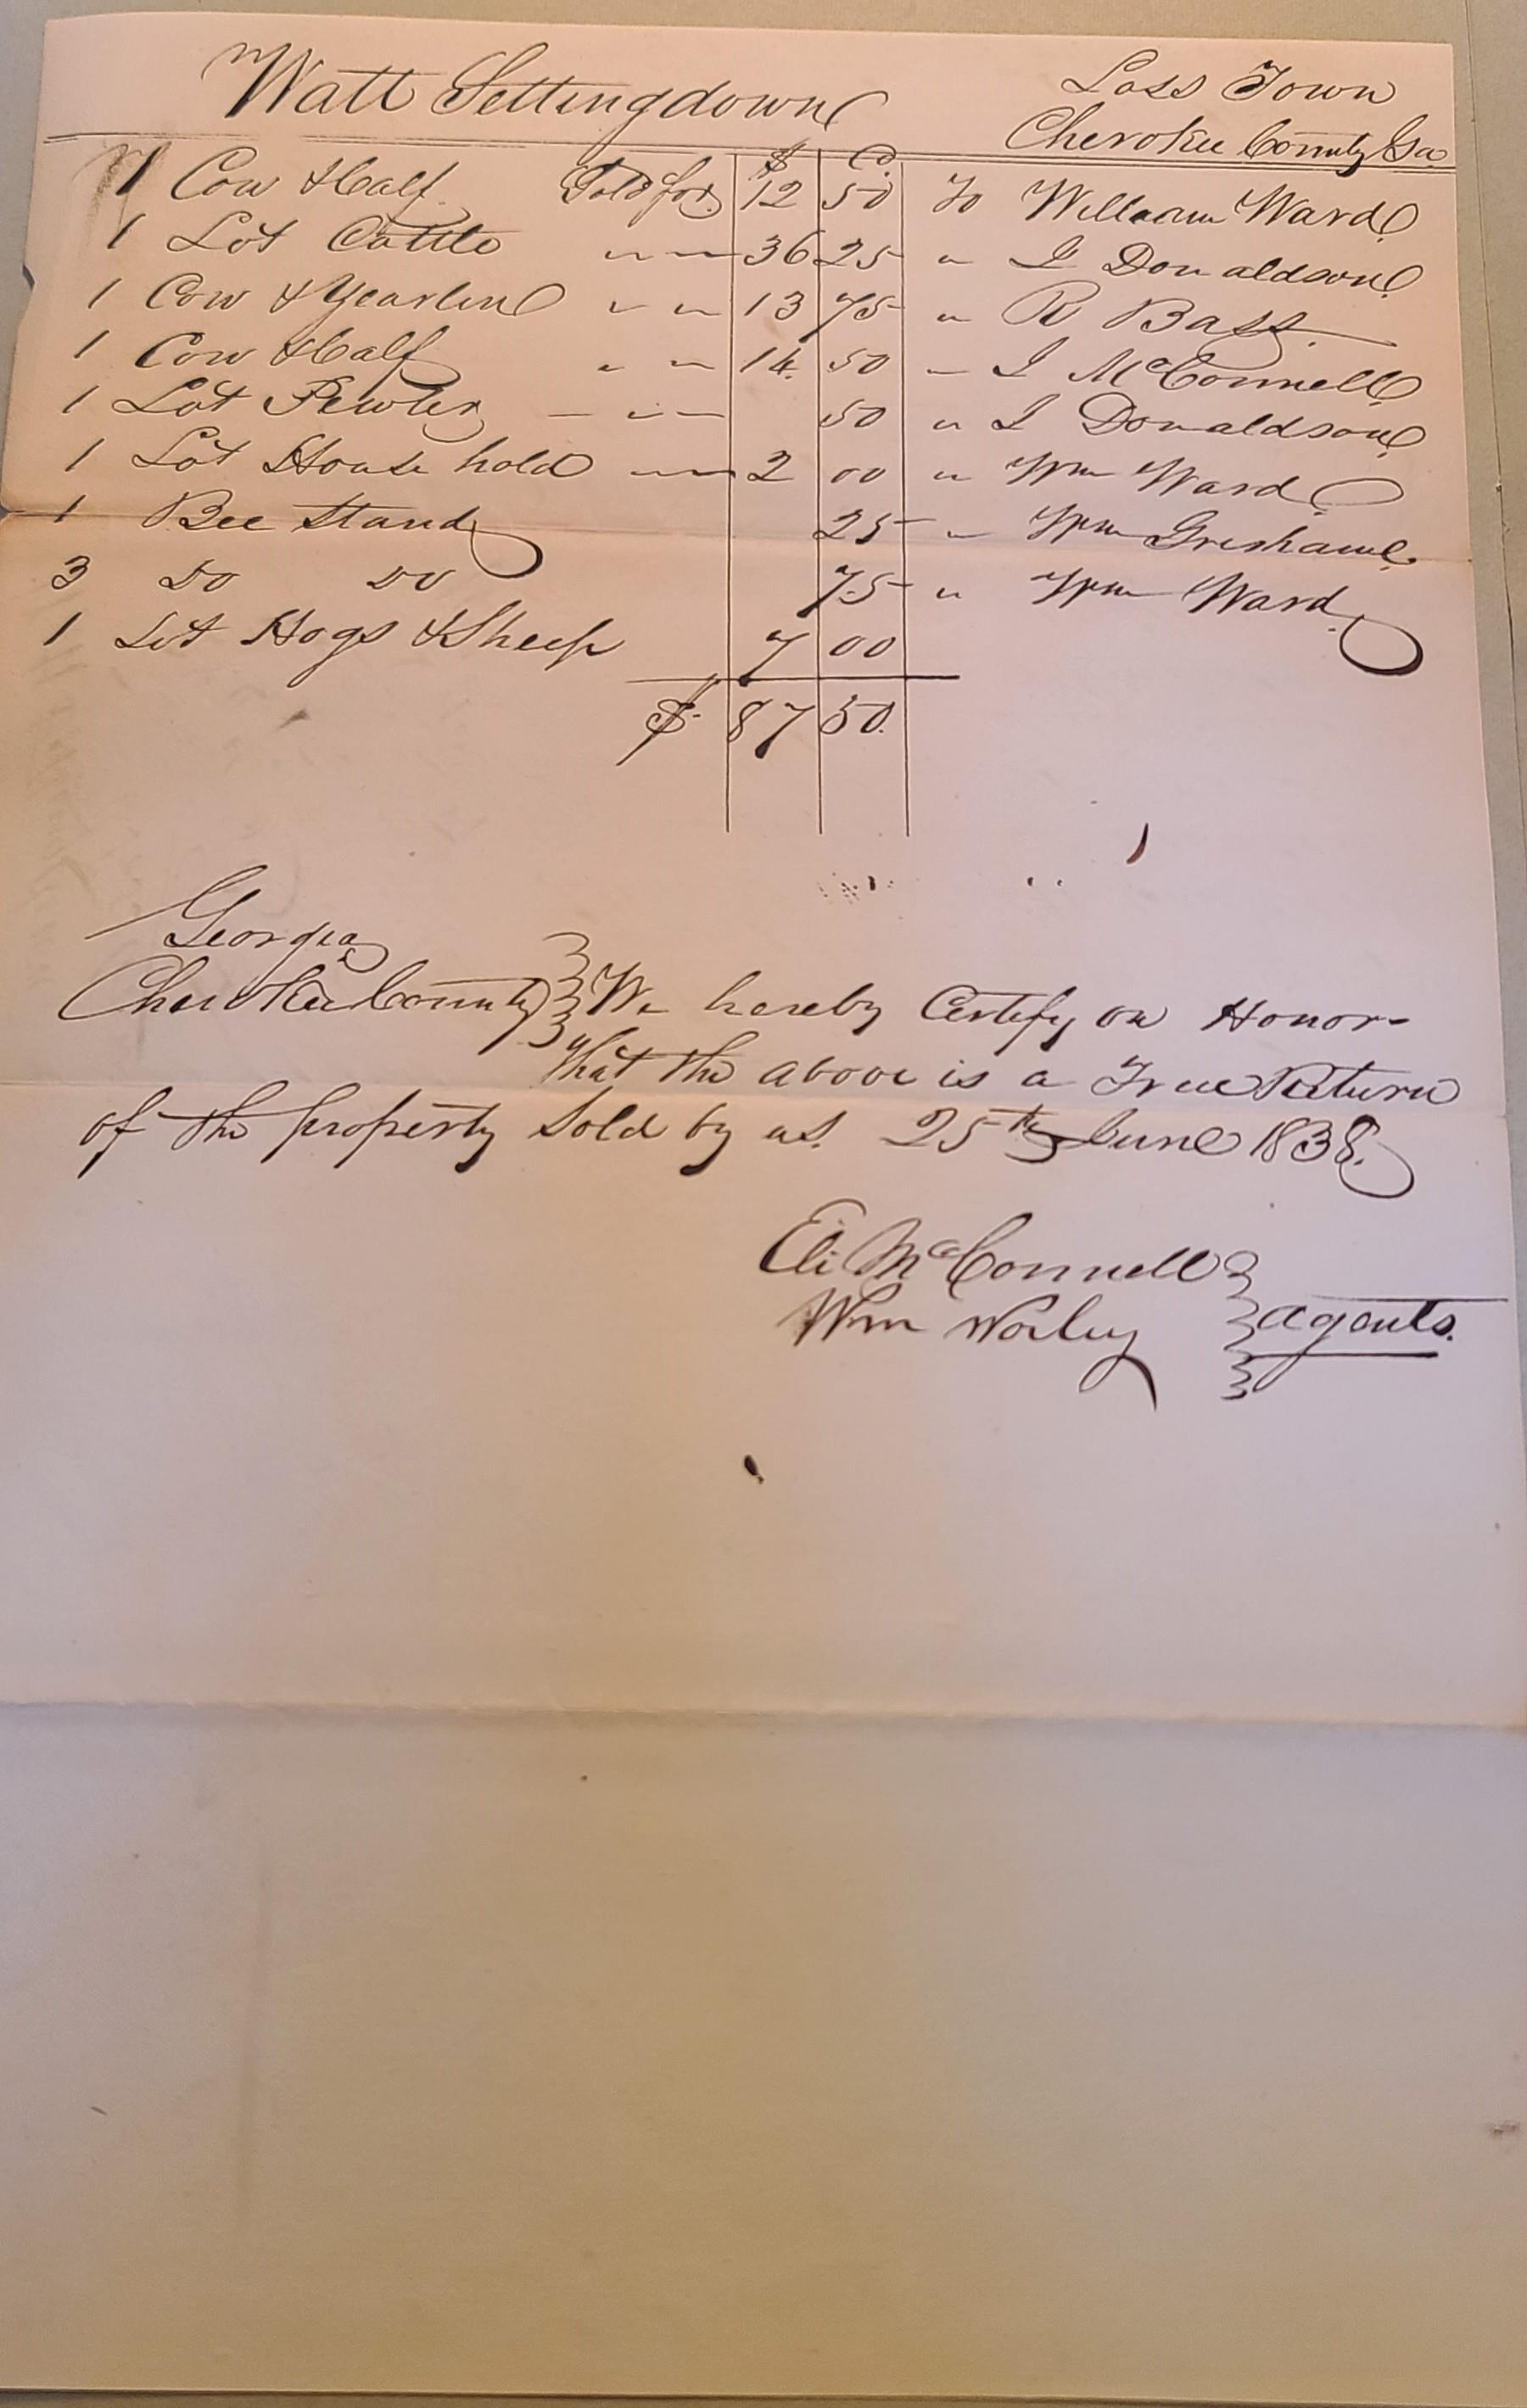 Watt Settingdown
Loss Town
Cherokee County Ga
$ C
1 Cow & Calf Sold for 12 50 To William Ward
1 Lot Cattle " " 36 25 " I Donaldson
1 Cow & Yearlin " " 13 75 " R Bass
1 Cow & Calf " " 14 50 " I McConnell
1 Lot Pewter " " 50 " I Donaldson
1 Lot House hold " " 2 00 " Wm Ward
1 Bee Stand 25 " Wm Grisham
3 Do Do 75 " Wm Ward
1 Lot Hogs & Sheep 7 00
$ 87 50
Georgia
Cherokee County We hereby Certify on Honor
that the above is a True Return
of the property Sold by us. 25th June 1838.
Eli McConnell
Wm Worley agents.